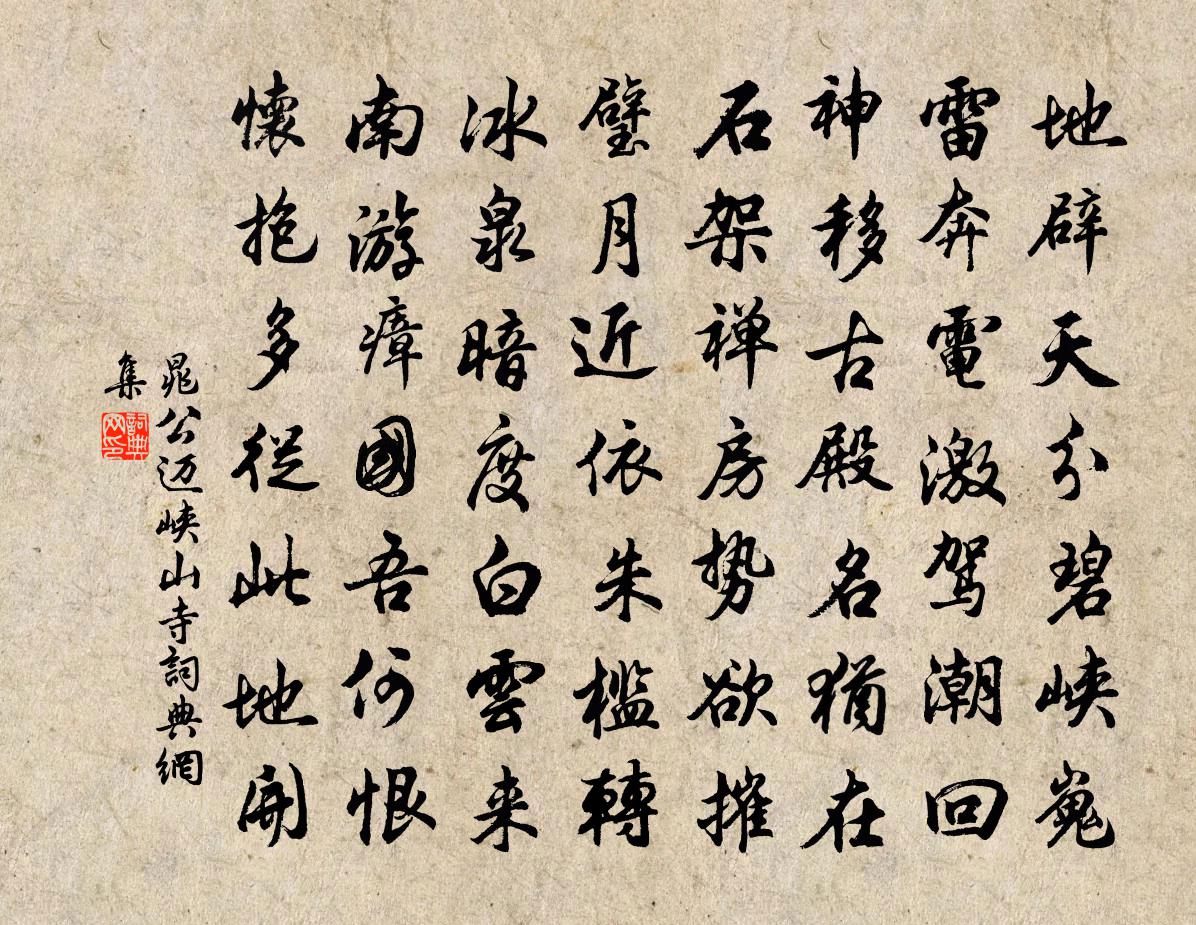 地辟天分碧峡嵬
雷奔電激駕潮回
神移古殿名猶在
石架禅房勢欲摧
璧月近依朱檻轉
冰泉暗度白雲来
南游瘴國吾何恨
懷抱多從此地開
晁公迈峽山寺詞典網
集
詞典
网印